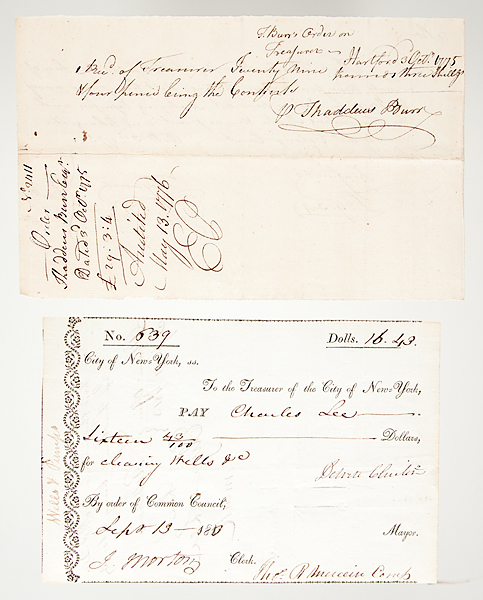 T. Burr's Order on
Treasurer
Hartford 3 Octr. 1775
Recd. of Treasurer Seventy Nine pounds three Shillgs
& four pence being the Contents
Thaddeus Burr
Order
Thaddeus Burr Esqr.
Dated 3d Octr 1775
£79:3:4
Audited
May 13. 1776
No. 639 Dolls. 16.43.
City of New-York, ss.
To the Treasurer of the City of New-York,
PAY Charles Lee
Sixteen 43/100 Dollars,
for cleaning Wells &c
DeWitt Clinton
By order of Common Council,
Sept 13 Mayor.
J. Morton Clerk.
Thos. R Mercein Comp
Wells & Pumps